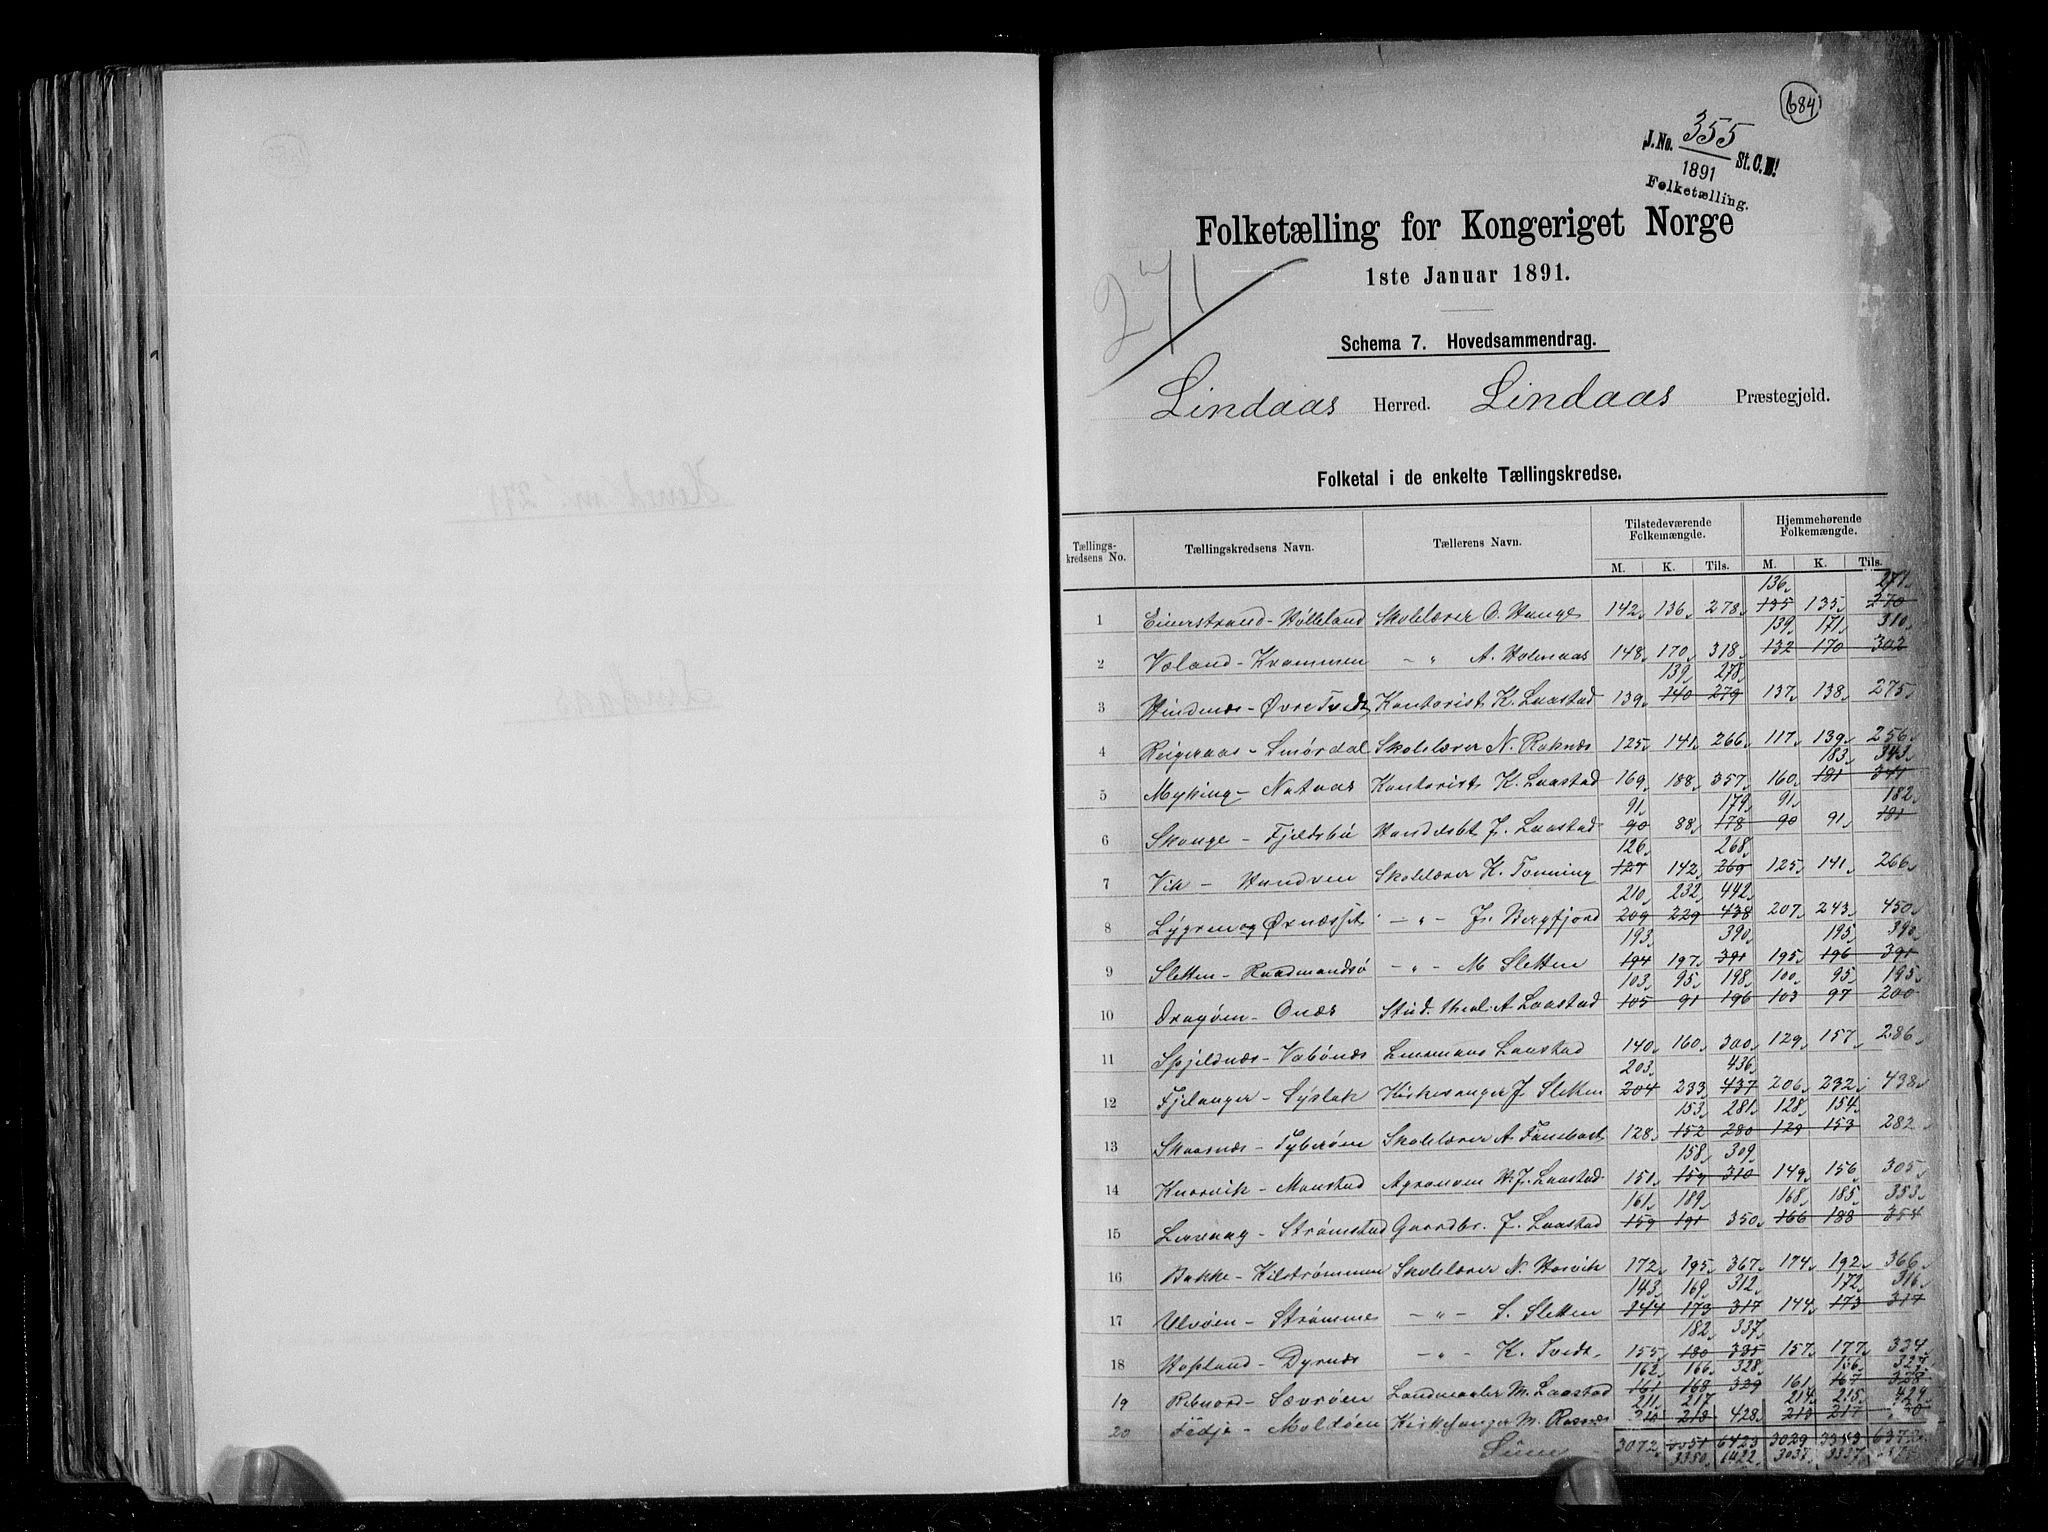 684
J.No. 355 St. C. B!
1891
Folketælling.
Folketælling for Kongeriget Norge
1ste Januar 1891.
271
Schema 7. Hovedsammendrag.
Lindaas Herred. Lindaas Præstegjeld.
Folketal i de enkelte Tællingskredse.
Tællingskredsens No. Tællingskredsens Navn. Tællerens Navn. Tilstedeværende Folkemængde. Hjemmehørende Folkemængde.
M. K. Tils. M. K. Tils.
136 271
1 Skolelærer O. Hauge 142 136 278 135 135 270
139 171 310
2 Væland - Krammen - " A. 148 170 318 132 170 302
139 278
3 Hindnæs - Øvre Tvedt Kontorist K. Laastad 139 140 279 137 138 275
4 Reigeraas - Smørdal Skolelærer N. Roknæs 125 141 266 117 139 256
183 343
5 Myking - Nataas Kontorist K. Laastad 169 188 357 160 181 341
91 179 91 182
6 Skauge - Fjeldsbø Handelsbt J. Laastad 90 88 178 90 91 181
126 268
7 Vik - Hundven Skolelærer K. Tonning 127 142 269 125 141 266
210 232 442
8 Lygren og - " - J. Bergfjord 209 229 438 207 243 450
193 390 195 390
9 Sletten - Raadmandsø - " - M Sletten 194 197 391 195 196 391
103 95 198 100 95 195
10 Dragøen - Onæs Stud. theol. A Laastad 105 91 196 103 97 200
11 Spjeldnæs - Vabønæs Lensmand Laastad 140 160 300 129 157 286
203 436
12 Fjelanger - Syslak Kirkesanger J. Sletten 204 233 437 206 232 438
153 281 128 154
13 Skaasnæs - Tyberøen Skolelærer A 128 152 280 129 153 282
158 309
14 Knarvik - Monstad Agronom H. J. Laastad 151 159 310 149 156 305
161 189 168 185 353
15 Lervaag - Strømstad Gaardbr. J. Laastad 159 191 350 166 188 354
16 Bakke - Kilstrømmen Skolelærer N. Hosvik 172 195 367 174 192 366
143 169 312 172 316
17 Ulvøen - Strømmes - " - S. Sletten 144 173 317 144 173 317
182 337
18 Hopland - Dyrnæs - " - K. Tvedt 155 180 335 157 177 334
162 166 328 327
19 Ribnord - Sævrøen Landmaaler M. Laastad 161 168 329 161 167 328
211 217 214 215 429
20 Fedje - Moldøen Kirkesanger M. 218 428 213 217
Sum 3072 6423 3029 3353 6372
3350 3037 3337